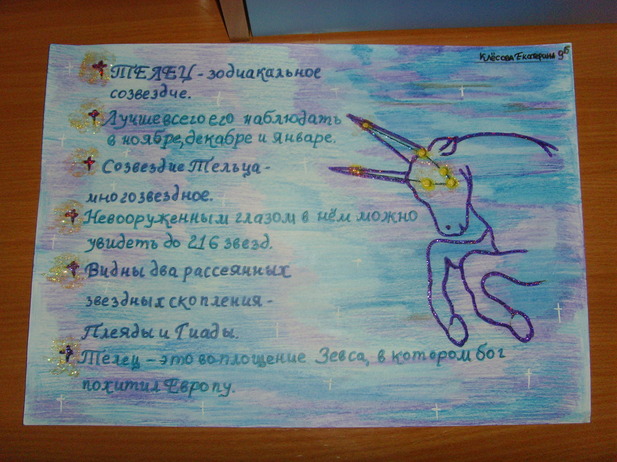 Клёсова Екатерина 9б
ТЕЛЕЦ - зодиакальное
созвездие.
Лучше всего его наблюдать
в ноябре, декабре и январе.
Созвездие Тельца -
многозвездное.
Невооруженным глазом в нём можно
увидеть до 216 звезд.
Видны два рассеянных
звездных скопления -
Плеяды и Гиады.
Телец - это воплощение Зевса, в котором бог
похитил Европу.